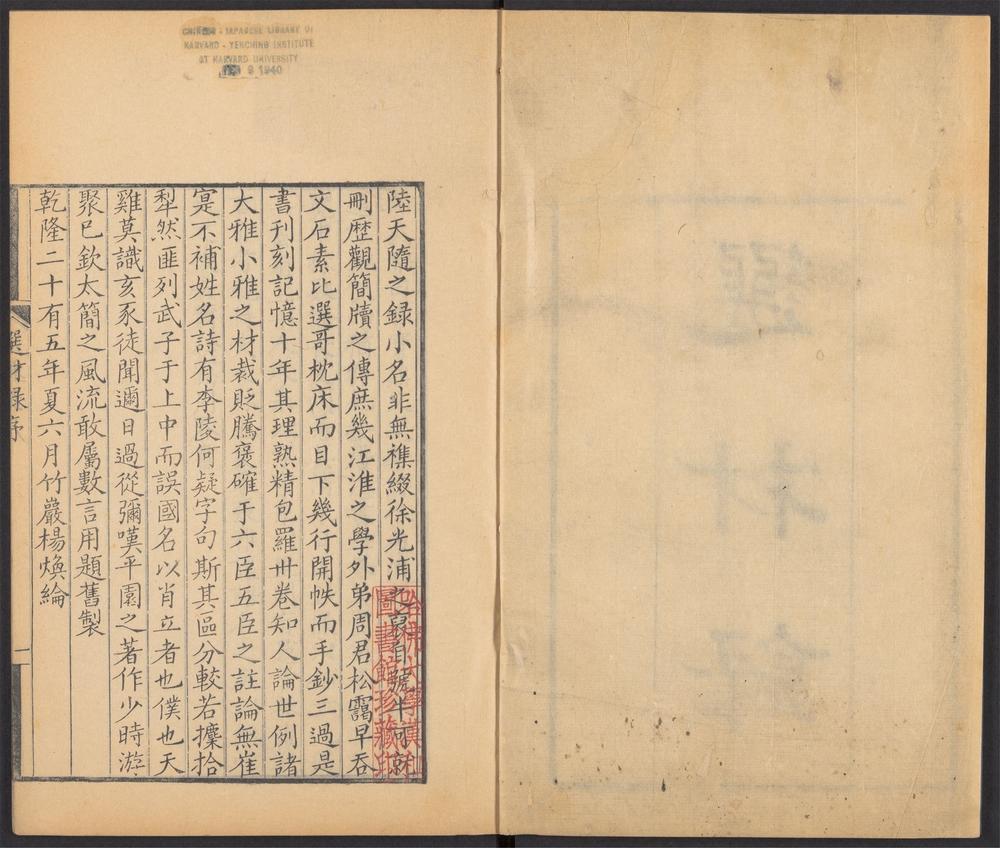 CHINESE - JAPANESE LIBRARY OF
HARVARD - YENCHING INSTITUTE
AT HARVARD UNIVERSITY
9 1940
陸天隨之録小名非無襍綴徐光浦之裒自號半可就
刪歷觀簡牘之傳庶幾江淮之學外弟周君松靄早吞
文石素比選哥枕床而目下幾行開帙而手鈔三過是
書刊刻記憶十年其理熟精包羅卅卷知人論世例諸
大雅小雅之材裁貶騰褒確于六臣五臣之註論無崔
寔不補姓名詩有李陵何疑字句斯其區分較若攗拾
犁然匪列武子于上中而誤國名以肖立者也僕也天
雞莫識亥豕徒聞邇日過從彌嘆平園之著作少時游
聚已欽太簡之風流敢屬數言用題舊製
乾隆二十有五年夏六月竹巖楊煥綸
選材録序
一
哈佛大學漢和
圖書館珍藏印
選材錄